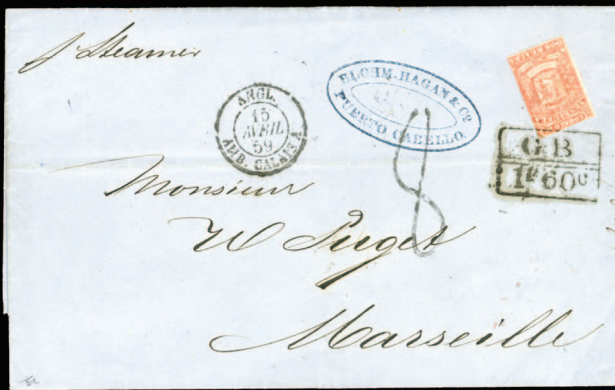 p Steamer
ANGL.
15
AVRIL
59
AMB. CALAIS A
BLOHM, HAGAN & Co
PUERTO CABELLO.
8
GB
1F60C
Monsieur
W Puget
Marseille